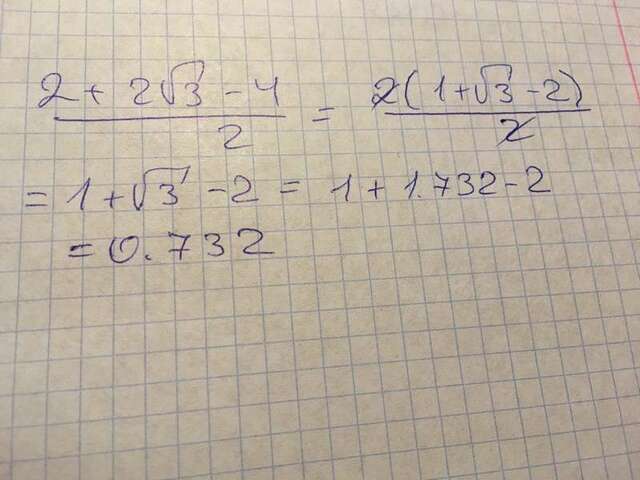 (2 + 2√3 - 4)/2 = 2(1+√3 - 2)/2
= 1 + √3 - 2 = 1 + 1.732 - 2
= 0.732